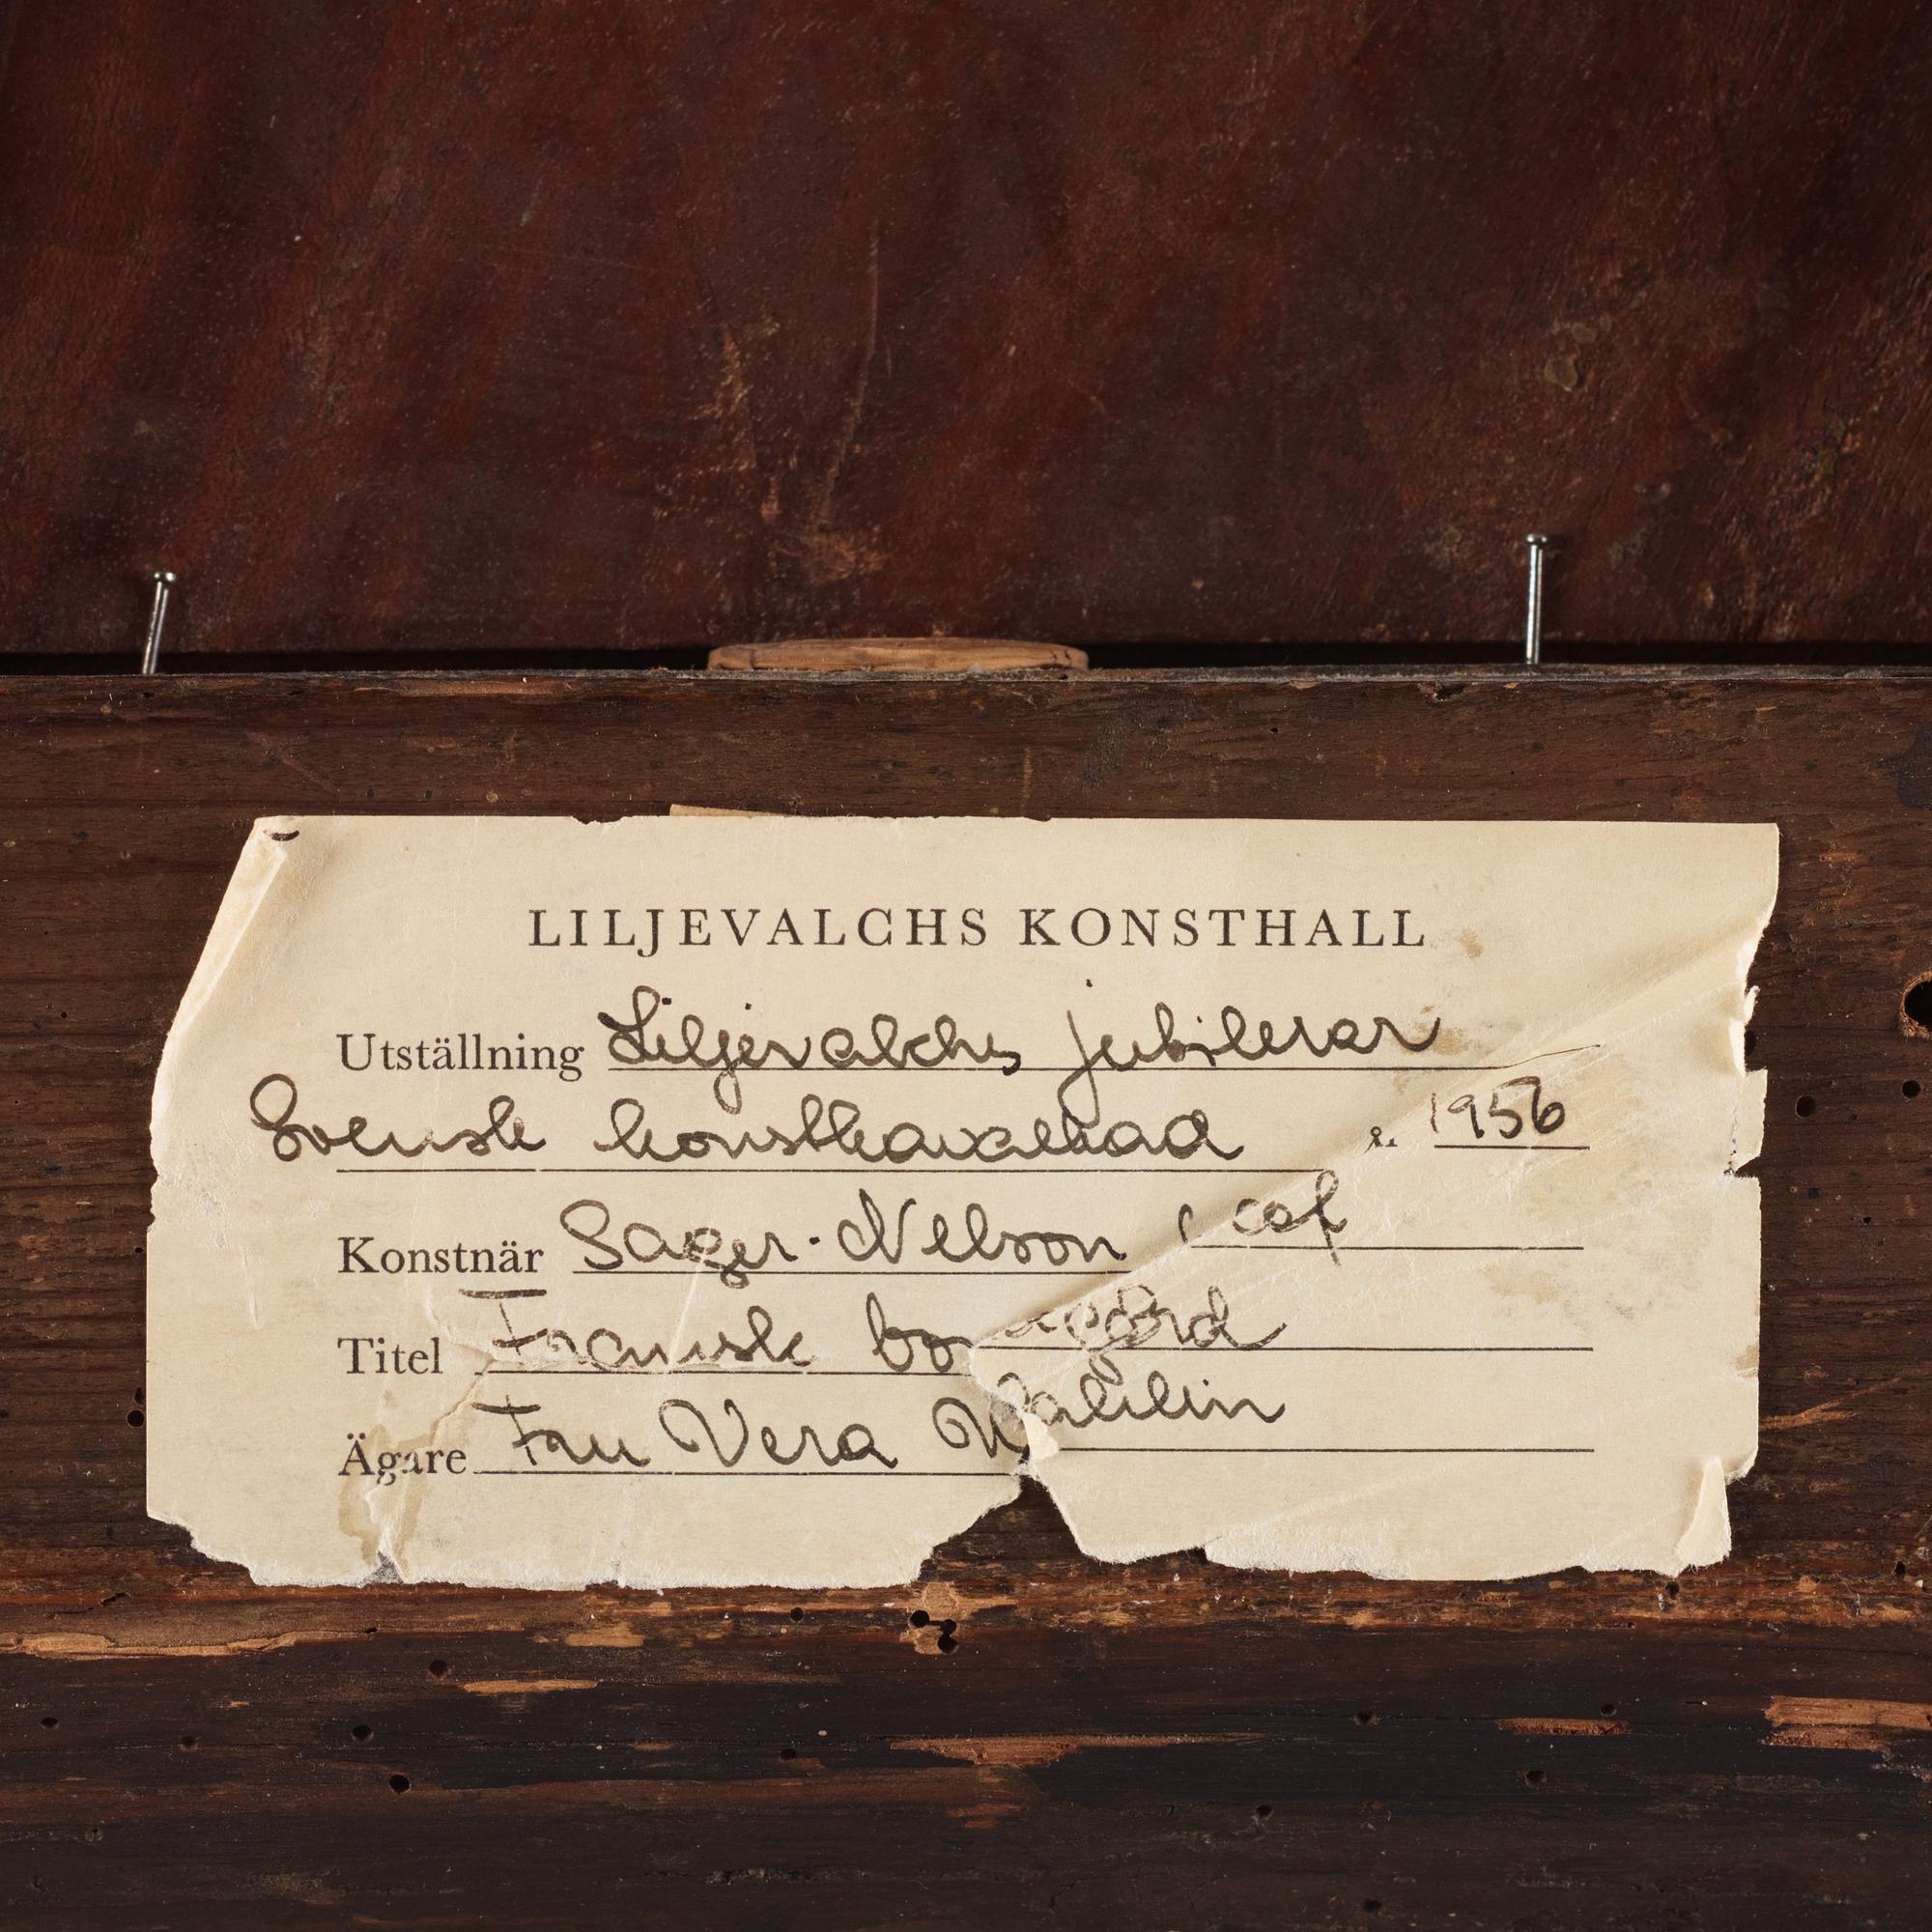 LILJEVALCHS KONSTHALL
Utställning Liljevalchs jubilerar
Svensk 1956
Konstnär Sager-Nelson Olof
Titel Fransk bondgård
Ägare Fru Vera Wahlin